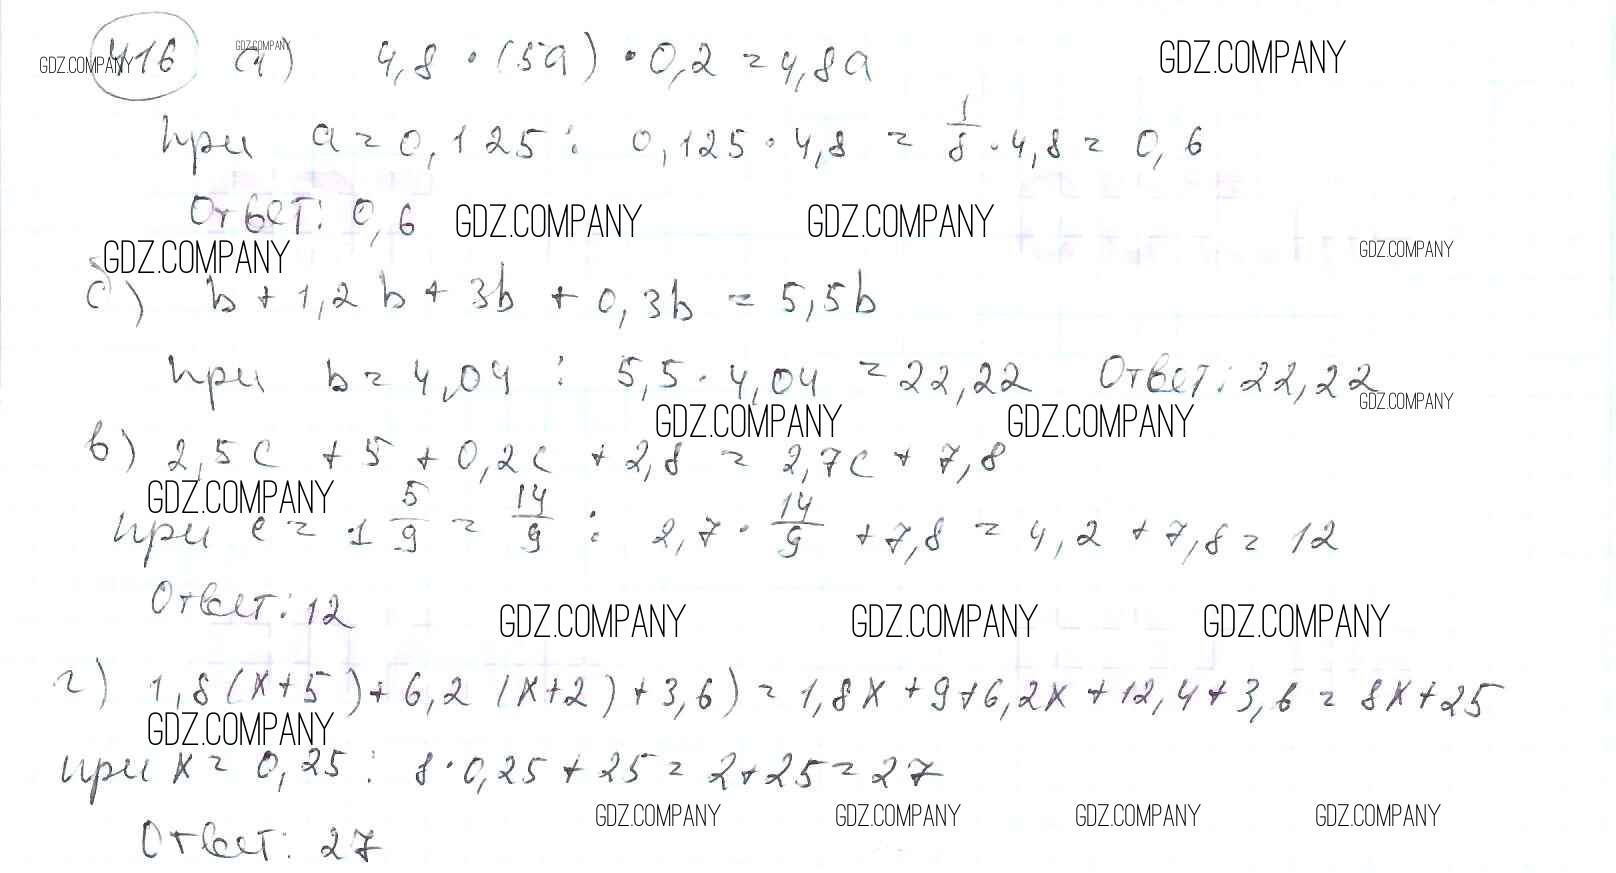 416 а) 4,8 · (5a) · 0,2 = 4,8a
GDZ.COMPANY GDZ.COMPANY GDZ.COMPANY
при a = 0,125 : 0,125 · 4,8 = 1/8 · 4,8 = 0,6
Ответ: 0,6
GDZ.COMPANY GDZ.COMPANY
GDZ.COMPANY GDZ.COMPANY
б) b + 1,2b + 3b + 0,3b = 5,5b
при b = 4,04 : 5,5 · 4,04 = 22,22 Ответ: 22,22
GDZ.COMPANY GDZ.COMPANY GDZ.COMPANY
в) 2,5c + 5 + 0,2c + 2,8 = 2,7c + 7,8
GDZ.COMPANY
при c = 1 5/9 = 14/9 : 2,7 · 14/9 + 7,8 = 4,2 + 7,8 = 12
Ответ: 12
GDZ.COMPANY GDZ.COMPANY GDZ.COMPANY
г) 1,8(x+5) + 6,2(x+2) + 3,6) = 1,8x + 9 + 6,2x + 12,4 + 3,6 = 8x + 25
GDZ.COMPANY
при x = 0,25 : 8 · 0,25 + 25 = 2 + 25 = 27
GDZ.COMPANY GDZ.COMPANY GDZ.COMPANY GDZ.COMPANY
Ответ: 27